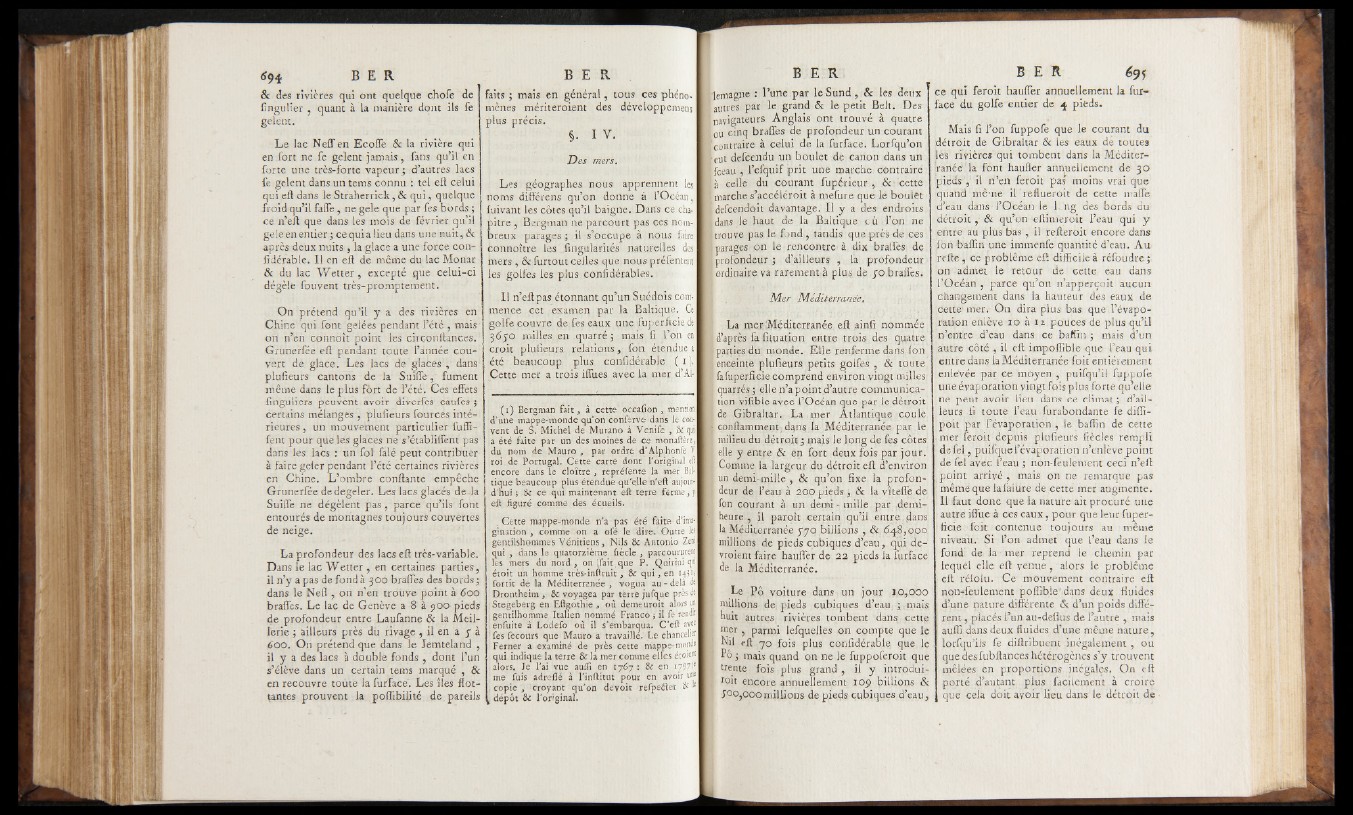 694 B E R
& des rivières qui ont quelque choſe de
ſingulier, quant à la manière dont ils ſe
gelent.
Le lac Neſſ en Ecoſſe & la rivière qui
en ſort ne ſe gelent jamais, ſans qu'il en
ſorte une très-forte vapeur ; d'autres lacs
ſe gelent dans un tems connu : tel eſt celui
qui eſt dans le Straherrick, & qui, quelque
froid qu'il faſſe, ne gele que par ſes bords ;
ce n'eſt que dans les mois de février qu'il
gele en entier ; ce qui a lieu dans une nuit, &
après deux nuits, la glace a une force con-
ſidérable. Il en eſt de même du lac Monar
& du lac Wetter, excepté que celui-ci
dégèle ſouvent très-promptement.
On prétend qu'il y a des rivières en
Chine qui ſont gelées pendant l'été, mais
on n'en connoît point les circonſtances.
Grunerſée eſt pendant toute l'année cou-
vert de glace. Les lacs de glaces, dans
pluſieurs cantons de la Suiſſe, fument
même dans le plus fort de l'été. Ces effets
ſinguliers peuvent avoir diverſes cauſes ;
certains mélanges, pluſieurs ſources inté-
rieures, un mouvement particulier ſuffi-
ſent pour que les glaces ne s'établiſſent pas
dans les lacs : un ſol ſalé peut contribuer
à faire geler pendant l'été certaines rivières
en Chine. L'ombre conſtante empêche
Grunerſée de degeler. Les lacs glacés de la
Suiſſe ne dégèlent pas, parce qu'ils ſont
entourés de montagnes toujours couvertes
de neige.
La profondeur des lacs eſt très-variable.
Dans le lac Wetter, en certaines parties,
il n'y a pas de fond à 300 braſſes des bords ;
dans le Neſſ, on n'en trouve point à 600
braſſes. Le lac de Genève a 8 à 900 pieds
de profondeur entre Lauſanne & la Meil-
lerie ; ailleurs près du rivage, il en a 5 à
600. On prétend que dans le Jemteland,
il y a des lacs à double fonds, dont l'un
s'élève dans un certain tems marqué, &
en recouvre toute la ſurface. Les îles flot-
tantes prouvent la poſſibilité de pareils
B E R
faits ; mais en général, tous ces phéno-
mènes mériteroient des développemens
plus précis.
§. I V.
Des mers.
Les géographes nous apprennent les
noms différens qu'on donne à l'Océan,
ſuivant les côtes qu'il baigne. Dans ce cha-
pitre, Bergman ne parcourt pas ces nom-
breux parages ; il s'occupe à nous faire
connoître les ſingularités naturelles des
mers, & ſurtout celles que nous préſentent
les golfes les plus conſidérables.
Il n'eſt pas étonnant qu'un Suédois com-
mence cet examen par la Baltique. Ce
golfe couvre de ſes eaux une ſuperficie de
3650 milles en quarré ; mais ſi l'on en
croit pluſieurs relations, ſon étendue a
été beaucoup plus conſidérable (1).
Cette mer a trois iſſues avec la mer d'Al-
(1) Bergman fait, à cette occaſion, mention
d'une mappe-monde qu'on conſerve dans le cou-
vent de S. Michel de Murano à Veniſe, & qui
a été faite par un des moines de ce monaſtère,
du nom de Mauro, par ordre d'Alphonſe V
roi de Portugal. Cette carte dont l'original eſt
encore dans le cloître, repréſente la mer Bal-
tique beaucoup plus étendue qu'elle n'eſt aujour-
d'hui ; & ce qui maintenant eſt terre ferme, y
eſt figuré comme des écueils.
Cette mappe-monde n'a pas été faite d'ima-
gination, comme on a oſé le dire. Outre les
gentilshommes Vénitiens, Nils & Antonio Zeni
qui, dans le quatorzième ſiècle, parcoururent
les mers du nord, on ſait que P. Quirini qui
étoit un homme très-inſtruit, & qui, en
ſortit de la Méditerranée, vogua au-delà de
Drontheim, & voyagea par terre juſque près de
Stegeberg en Eſtgothie, où demeuroit alors un
gentilhomme Italien nommé Franco ; il ſe rendit
enſuite à Lodeſe où il s'embarqua. C'eſt avec
ſes ſecours que Mauro a travaillé. Le chancelier
Ferner a examiné de près cette mappe-monde
qui indique la terre & la mer comme elles étoient
alors. Je l'ai vue auſſi en 1767 : & en
me ſuis adreſſé à l'inſtitut pour en avoir une
copie, croyant qu'on devoit reſpecter & le
dépôt & l'original.
B E R
lemagne : l'une par le Sund, & les deux
autres par le grand & le petit Belt. Des
navigateurs Anglais ont trouvé à quatre
ou cinq braſſes de profondeur un courant
contraire à celui de la ſurface. Lorſqu'on
eut deſcendu un boulet de canon dans un
ſceau, l'eſquif prit une marche contraire
à celle du courant ſupérieur, & cette
marche s'accéléroit à meſure que le boulet
deſcendoit davantage. Il y a des endroits
dans le haut de la Baltique où l'on ne
trouve pas le fond, tandis que près de ces
parages on le rencontre à dix braſſes de
profondeur ; d'ailleurs, la profondeur
ordinaire va rarement à plus de 50 braſſes.
Mer Méditerranée.
La mer Méditerranée eſt ainſi nommée
d'après ſa ſituation entre trois des quatre
parties du monde. Elle renferme dans ſon
enceinte pluſieurs petits golfes, & toute
ſa ſuperficie comprend environ vingt milles
quarrés ; elle n'a point d'autre communica-
tion viſible avec l'Océan que par le détroit
de Gibraltar. La mer Atlantique coule
conſtamment dans la Méditerranée par le
milieu du détroit ; mais le long de ſes côtes
elle y entre & en ſort deux fois par jour.
Comme la largeur du détroit eſt d'environ
un demi-mille, & qu'on fixe la profon-
deur de l'eau à 200 pieds, & la viteſſe de
ſon courant à un demi-mille par demi-
heure, il paroît certain qu'il entre dans
la Méditerranée 570 billions, & 648,000
millions de pieds cubiques d'eau, qui de-
vroient faire hauſſer de 22 pieds la ſurface
de la Méditerranée.
Le Pô voiture dans un jour 10,000
millions de pieds cubiques d'eau ; mais
huit autres rivières tombent dans cette
mer, parmi leſquelles on compte que le
Nil eſt 70 fois plus conſidérable que le
Pô ; mais quand on ne le ſuppoſeroit que
trente fois plus grand, il y introdui-
roit encore annuellement 109 billions &
500,000 millions de pieds cubiques d'eau,
B E R 695
ce qui feroit hauſſer annuellement la ſur-
face du golfe entier de 4 pieds.
Mais ſi l'on ſuppoſe que le courant du
détroit de Gibraltar & les eaux de toutes
les rivières qui tombent dans la Méditer-
ranée la font hauſſer annuellement de 30
pieds, il n'en ſeroit pas moins vrai que
quand même il reflueroit de cette maſſe
d'eau dans l'Océan le long des bords du
détroit, & qu'on eſtimeroit l'eau qui y
entre au plus bas, il reſteroit encore dans
ſon baſſin une immenſe quantité d'eau. Au
reſte, ce problême eſt difficile à réſoudre ;
on admet le retour de cette eau dans
l'Océan, parce qu'on n'apperçoit aucun
changement dans la hauteur des eaux de
cette mer. On dira plus bas que l'évapo-
ration enlève 10 à 12 pouces de plus qu'il
n'entre d'eau dans ce baſſin ; mais d'un
autre côté, il eſt impoſſible que l'eau qui
entre dans la Méditerranée ſoit entièrement
enlevée par ce moyen, puiſqu'il ſuppoſe
une évaporation vingt fois plus forte qu'elle
ne peut avoir lieu dans ce climat ; d'ail-
leurs ſi toute l'eau ſurabondante ſe diſſi-
poit par l'évaporation, le baſſin de cette
mer ſeroit depuis pluſieurs ſiècles rempli
de ſel, puiſque l'évaporation n'enlève point
de ſel avec l'eau ; non-ſeulement ceci n'eſt
point arrivé, mais on ne remarque pas
même que la ſalure de cette mer augmente.
Il faut donc que la nature ait procuré une
autre iſſue à ces eaux, pour que leur ſuper-
ficie ſoit contenue toujours au même
niveau. Si l'on admet que l'eau dans le
fond de la mer reprend le chemin par
lequel elle eſt venue, alors le problême
eſt réſolu. Ce mouvement contraire eſt
non-ſeulement poſſible dans deux fluides
d'une nature différente & d'un poids diffé-
rent, placés l'un au-deſſus de l'autre, mais
auſſi dans deux fluides d'une même nature,
lorſqu'ils ſe diſtribuent inégalement, ou
que des ſubſtances hétérogènes s'y trouvent
mêlées en proportions inégales. On eſt
porté d'autant plus facilement à croire
que cela doit avoir lieu dans le détroit de